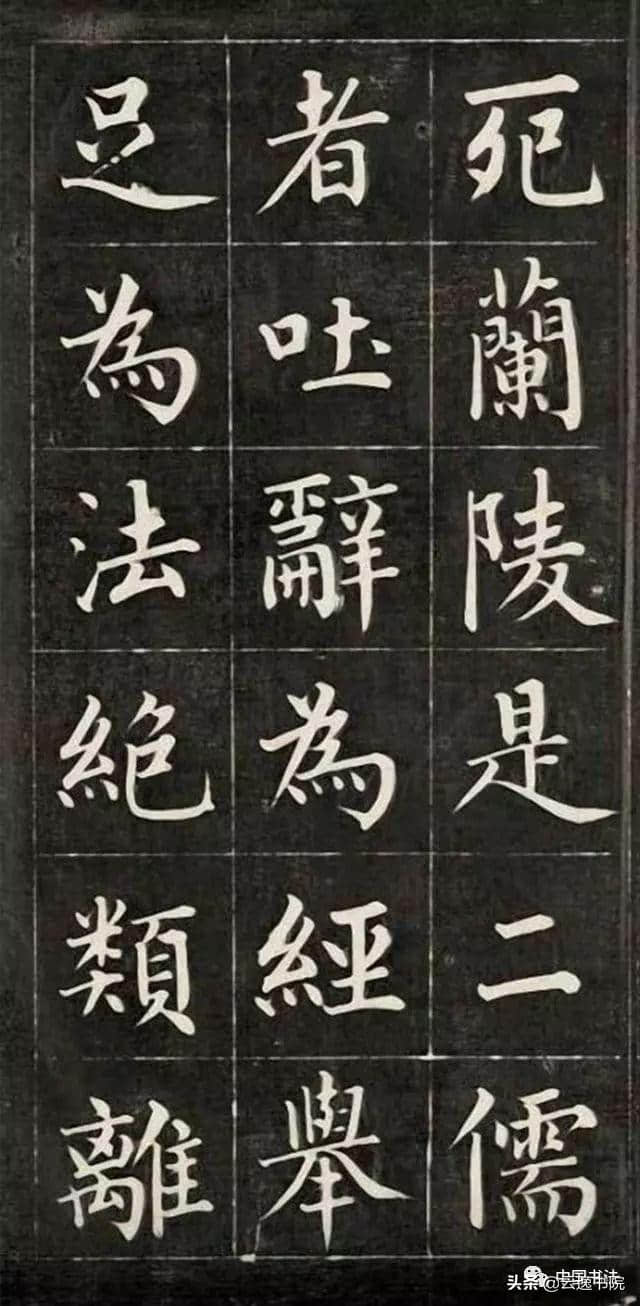 死蘭陵是二儒
者吐辭為經舉
足為法絕類離
中国书法
头条@云逸书院